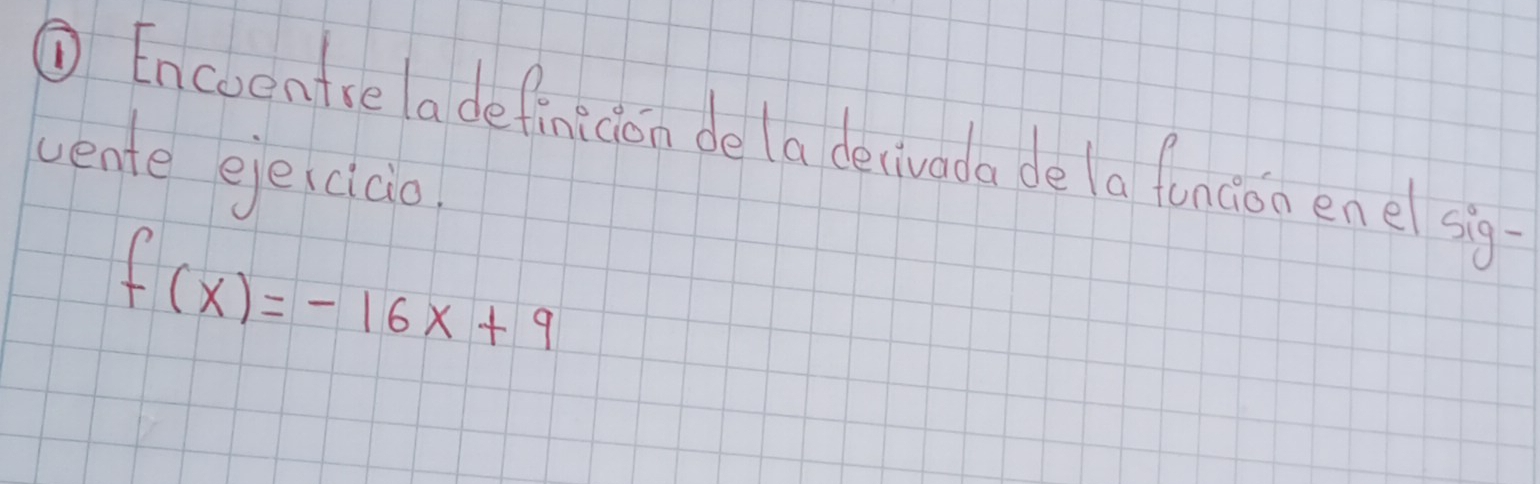 ① Encuentre la definición de la derivada de la función en el sig-
uente ejercicio.
f(x)=-16x+9